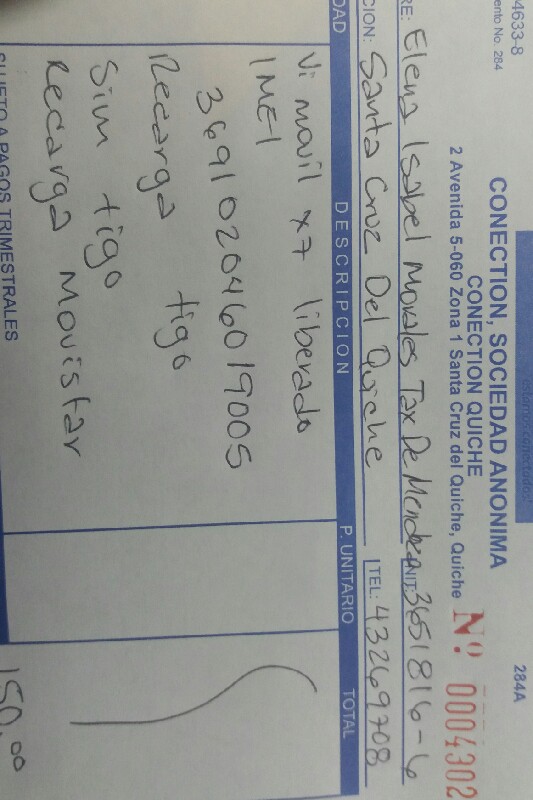 4633-8
ento No. 284
284A
estamos conectados!
CONECTION, SOCIEDAD ANONIMA
CONECTION QUICHE
2 Avenida 5-060 Zona 1 Santa Cruz del Quiche, Quiche
Nº 0004302
RE: Elena Isabel Morales Tax De Mendez NIT: 3651816-6
CION: Santa Cruz Del Quiche TEL: 43269708
DAD DESCRIPCION P. UNITARIO TOTAL
Vi movil x7 liberado
IMEI
369102046019005
Recarga tigo
Sim tigo
Recarga Movistar
SUJETO A PAGOS TRIMESTRALES
150.00